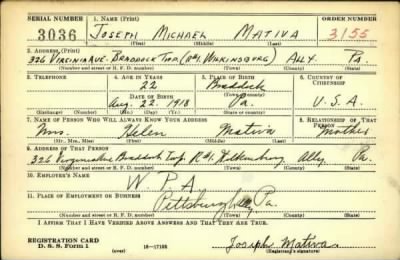 SERIAL NUMBER 1. NAME (Print) ORDER NUMBER
3036 JOSEPH MICHAEL MATIVA 3155
(First) (Middle) (Last)
2. ADDRESS (Print)
326 VIRGINIA AVE. BRADDOCK TWP. (R#1. WILKINSBURG) ALLY. PA.
(Number and street or R. F. D. number) (Town) (County) (State)
3. TELEPHONE 4. AGE IN YEARS 5. PLACE OF BIRTH 6. COUNTRY OF CITIZENSHIP
22 Braddock
DATE OF BIRTH (Town or county)
Aug. 22 1918 Pa. U.S.A.
(Exchange) (Number) (Mo.) (Day) (Yr.) (State or country)
7. NAME OF PERSON WHO WILL ALWAYS KNOW YOUR ADDRESS 8. RELATIONSHIP OF THAT PERSON
Mrs. Helen Mativa Mother
(Mr., Mrs., Miss) (First) (Middle) (Last)
9. ADDRESS OF THAT PERSON
326 Virginia Ave Braddock Twp. R#1. Wilkinsburg Ally. Pa.
(Number and street or R. F. D. number) (Town) (County) (State)
10. EMPLOYER'S NAME
W.P.A.
11. PLACE OF EMPLOYMENT OR BUSINESS
Pittsburgh Ally. Pa.
(Number and street or R. F. D. number) (Town) (County) (State)
I AFFIRM THAT I HAVE VERIFIED ABOVE ANSWERS AND THAT THEY ARE TRUE.
REGISTRATION CARD
D. S. S. Form 1 (over) 16—17105 Joseph Mativa
(Registrant's signature)